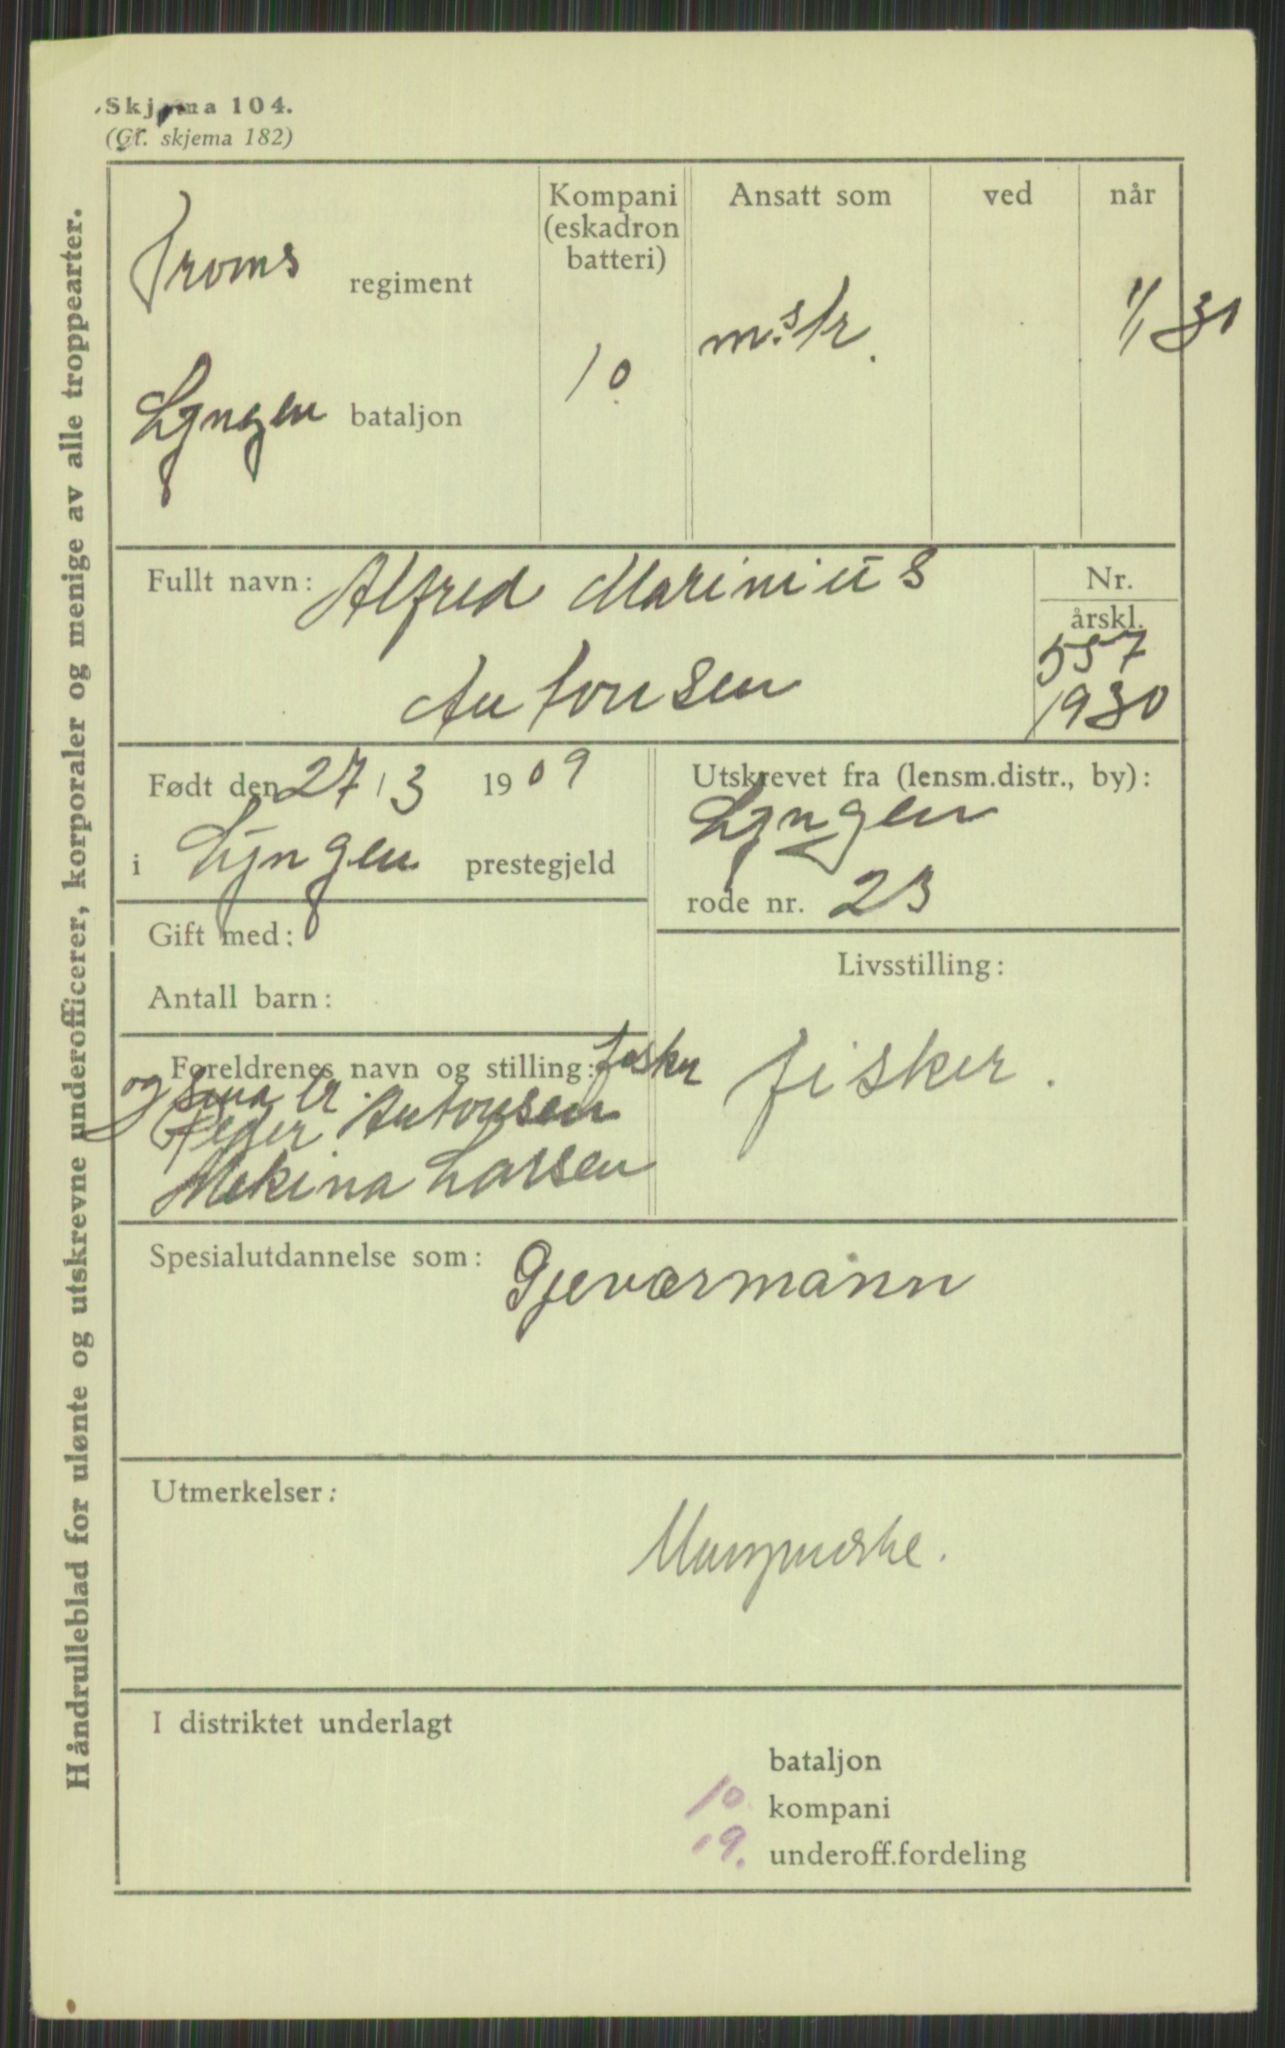 Skjema 104.
(Gl. skjema 182)
Håndrulleblad for ulønte og utskrevne underofficerer, korporaler og menige av alle troppearter.
Troms regiment
Lyngen bataljon
Kompani
(eskadron
batteri)
10
Ansatt som
ved
når
1/1 30
Fullt navn: Alfred Marinius
Antonsen
Nr.
årskl.
557
1930
Født den 27/3 1909
i Lyngen prestegjeld
Utskrevet fra (lensm.distr., by):
Lyngen
rode nr. 23
Gift med:
Antall barn:
Livsstilling:
fisker.
Foreldrenes navn og stilling: fisker
og br.
Peder Antonsen
Mekina Larsen
Spesialutdannelse som: Gjeværmann
Utmerkelser:
I distriktet underlagt
bataljon
10. kompani
19. underoff.fordeling